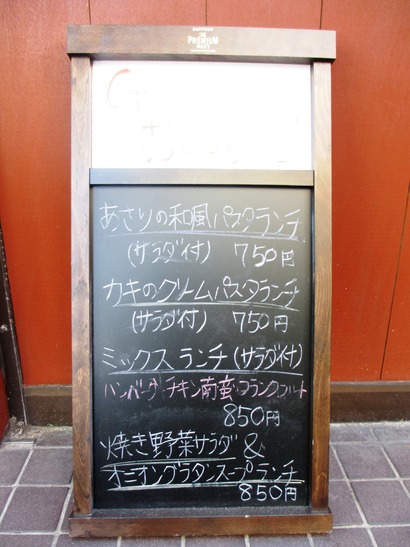 SUNTORY
THE
PREMIUM
MALT'S
あさりの和風パスタランチ
(サラダ付) 750円
カキのクリームパスタランチ
(サラダ付) 750円
ミックスランチ(サラダ付)
ハンバーグ・チキン南蛮・フランクフルト
850円
焼き野菜サラダ &
オニオングラタンスープランチ
850円